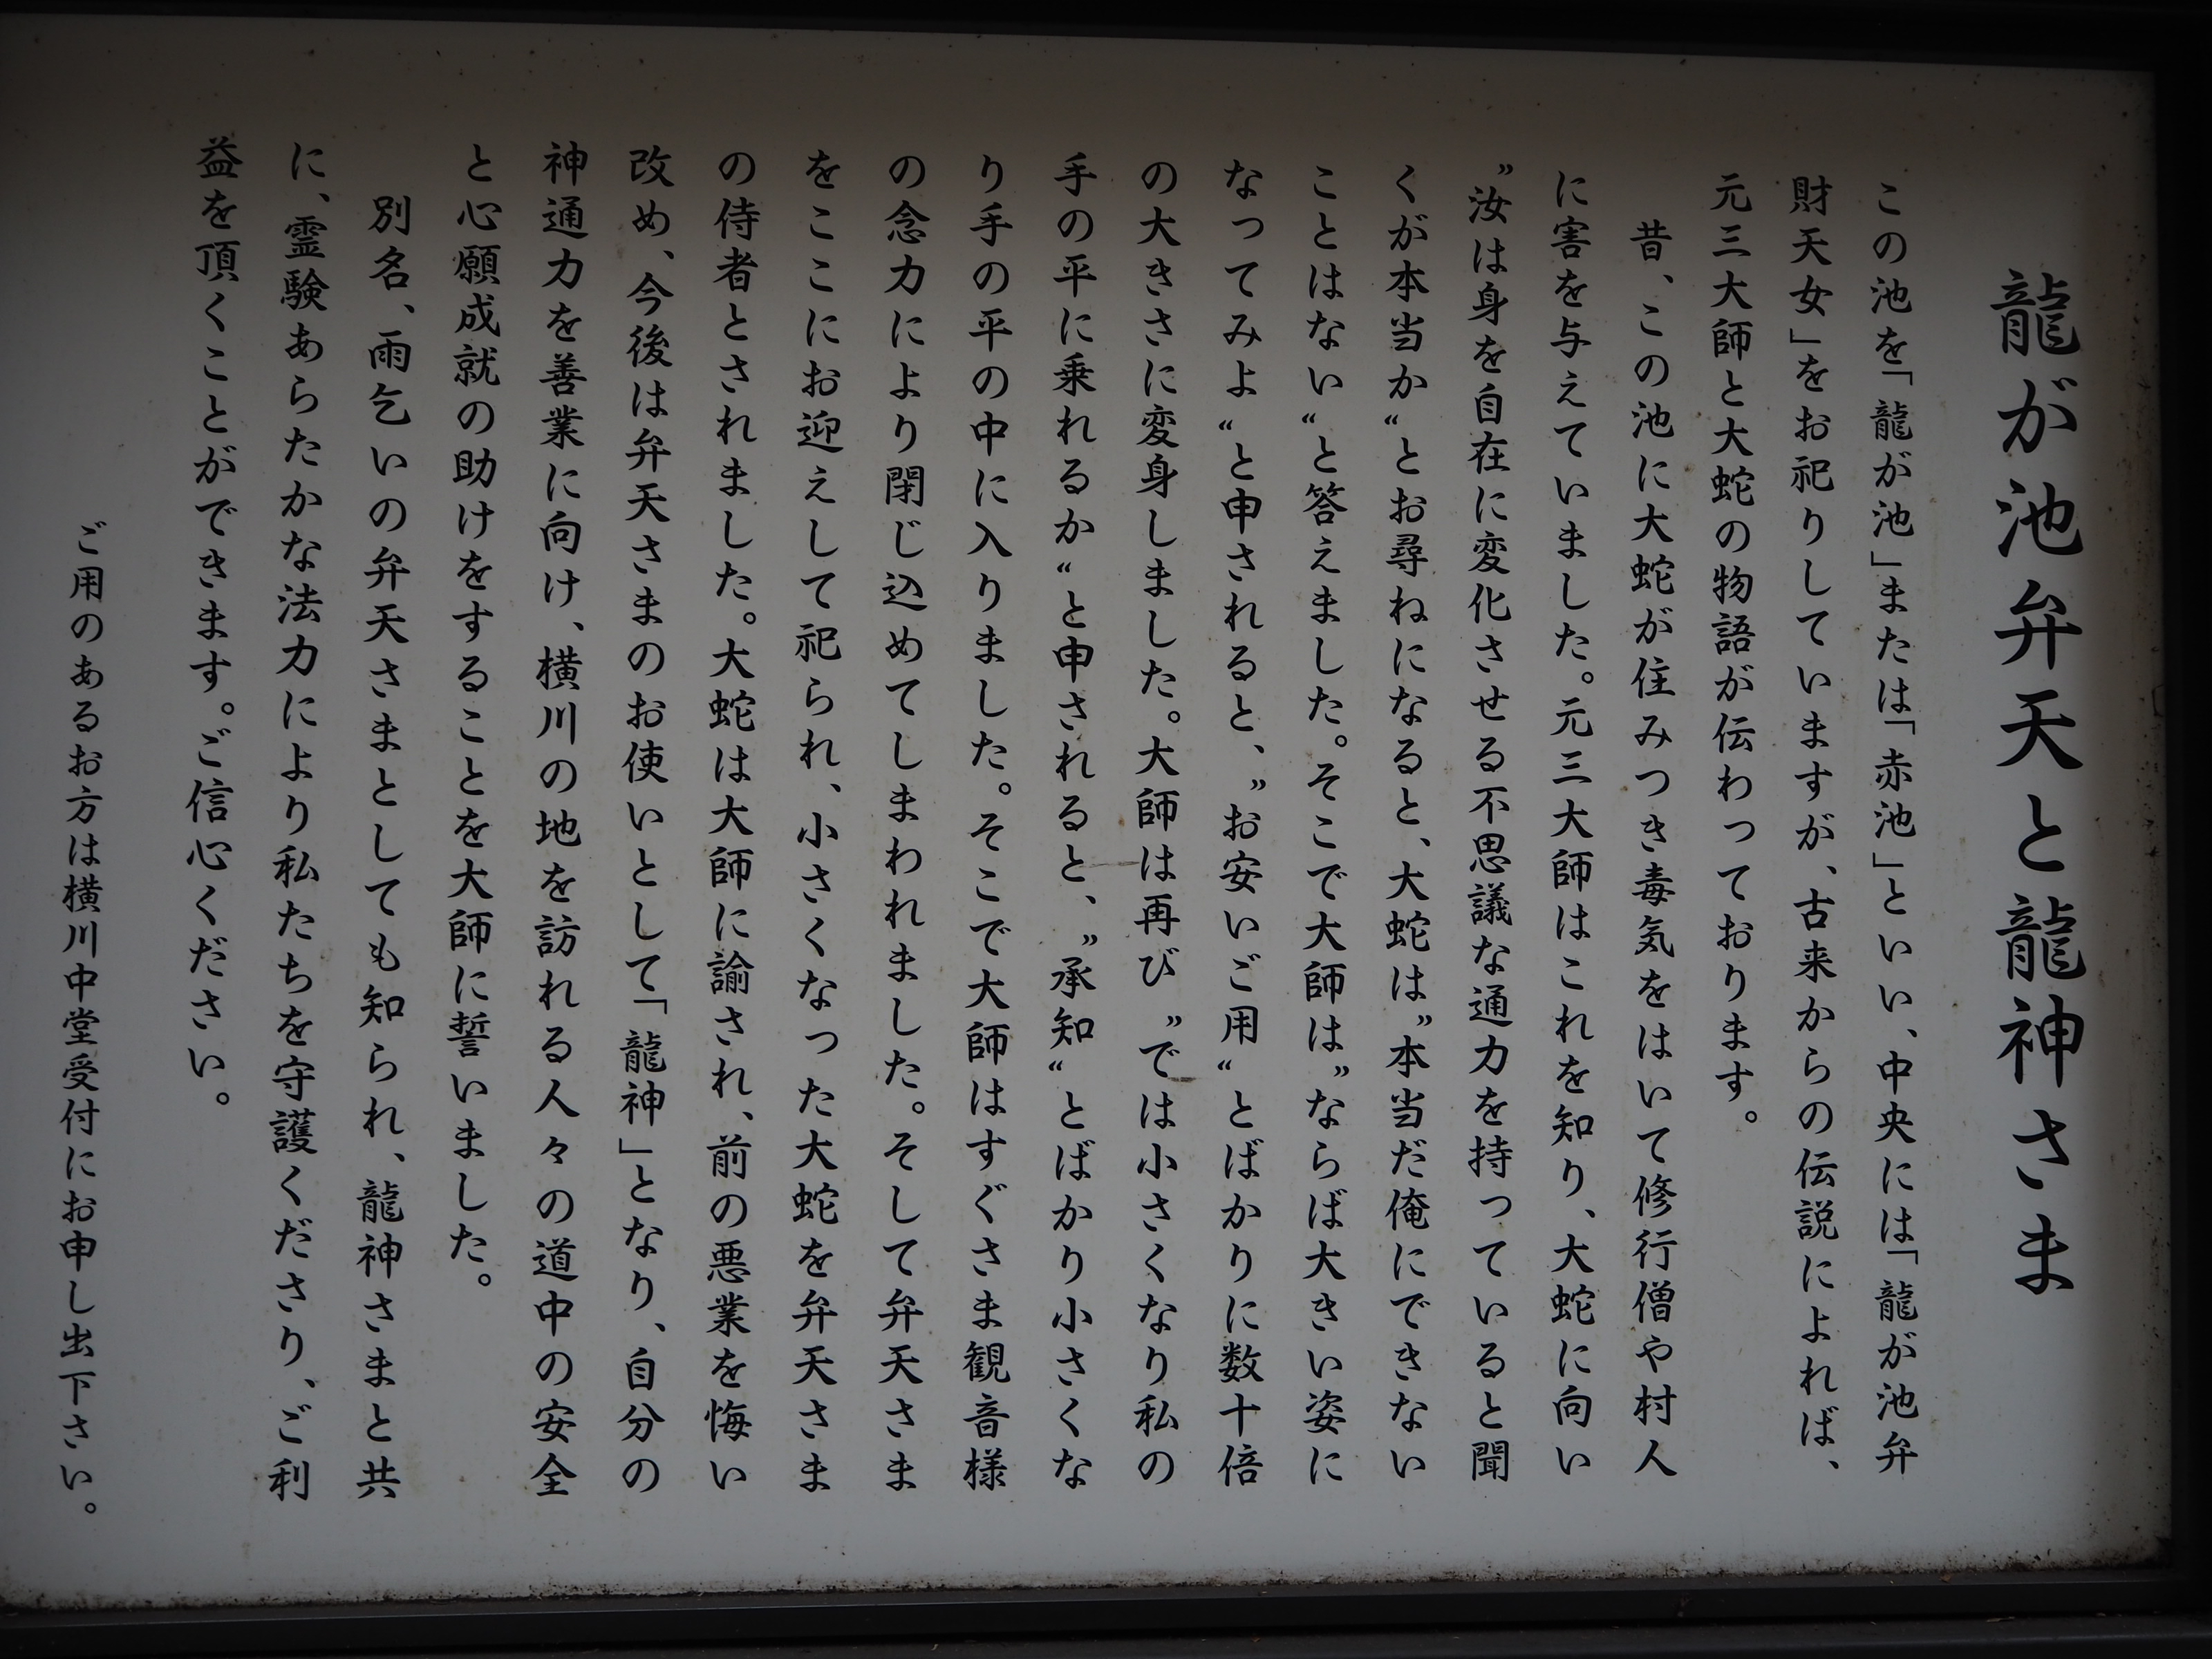 龍が池弁天と龍神さま
この池を「龍が池」または「赤池」といい、中央には「龍が池弁
財天女」をお祀りしていますが、古来からの伝説によれば、
元三大師と大蛇の物語が伝わっております。
昔、この池に大蛇が住みつき毒気をはいて修行僧や村人
に害を与えていました。元三大師はこれを知り、大蛇に向い
〝汝は身を自在に変化させる不思議な通力を持っていると聞
くが本当か〟とお尋ねになると、大蛇は〝本当だ俺にできない
ことはない〟と答えました。そこで大師は〝ならば大きい姿に
なってみよ〟と申されると、〝お安いご用〟とばかりに数十倍
の大きさに変身しました。大師は再び〝では小さくなり私の
手の平に乗れるか〟と申されると、〝承知〟とばかり小さくな
り手の平の中に入りました。そこで大師はすぐさま観音様
の念力により閉じ込めてしまわれました。そして弁天さま
をここにお迎えして祀られ、小さくなった大蛇を弁天さま
の侍者とされました。大蛇は大師に諭され、前の悪業を悔い
改め、今後は弁天さまのお使いとして「龍神」となり、自分の
神通力を善業に向け、横川の地を訪れる人々の道中の安全
と心願成就の助けをすることを大師に誓いました。
別名、雨乞いの弁天さまとしても知られ、龍神さまと共
に、霊験あらたかな法力により私たちを守護くださり、ご利
益を頂くことができます。ご信心ください。
ご用のあるお方は横川中堂受付にお申し出下さい。